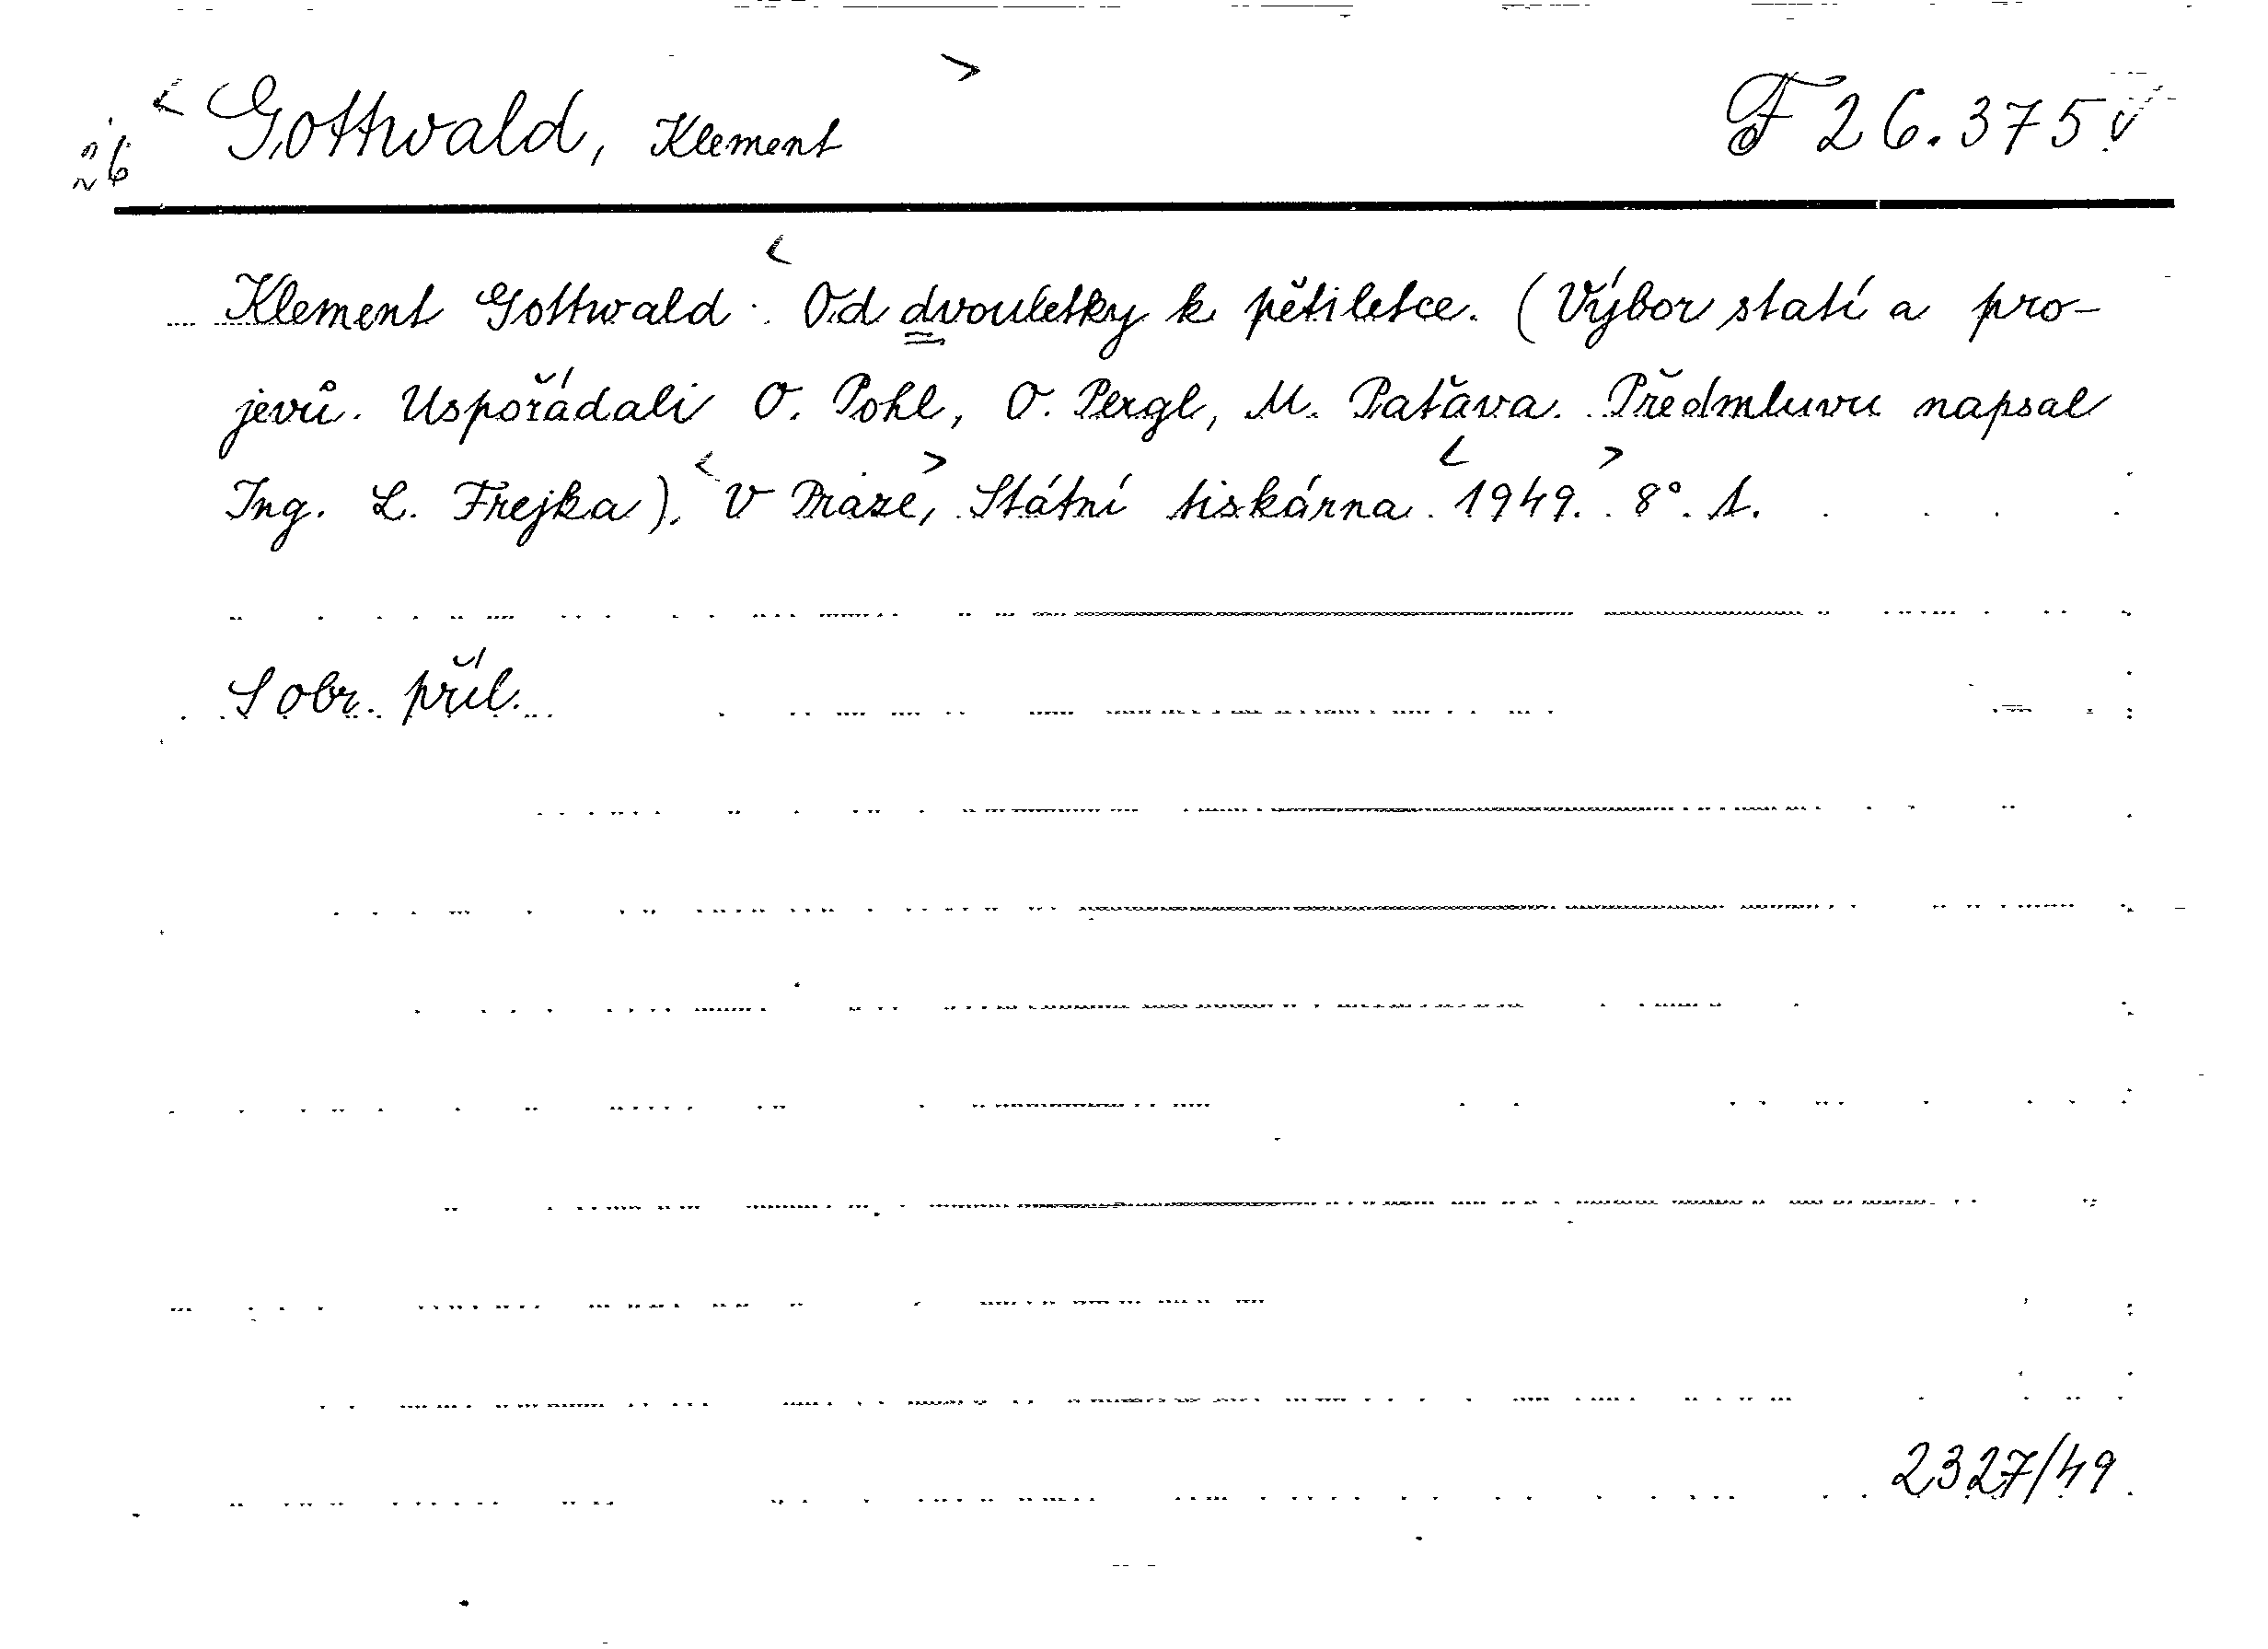 Gottwald, Klement F 26.375
Klement Gottwald: Od dvouletky k pětiletce. (Výbor statí a pro-
jevů. Uspořádali O. Pohl, O. Pergl, M. Paťava. Předmluvu napsal
Ing. L. Frejka). V Praze, Státní tiskárna. 1949. 8°. 1.
S obr. příl.
2327/49